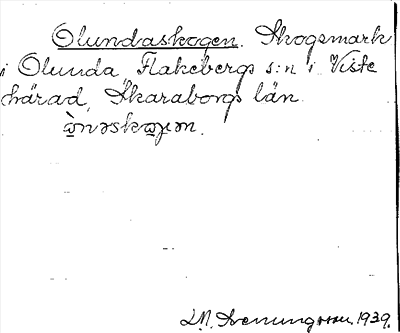 Olundaskogen. Skogsmark
i Olunda, Flakebergs s:n i Viste
härad, Skaraborgs län.
S.M. Svenungsson 1939.